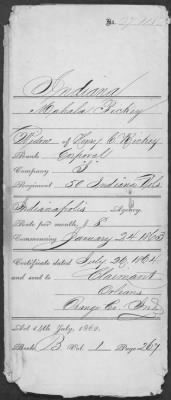 No. 27,115
Indiana
Mahala Richey
Widow of Henry C. Richey
Rank Corporal
Company "I"
Regiment 50 Indiana Vols
Indianapolis Agency
Rate per month, 8
Commencing January 24 1863
Certificate dated July 26, 1864
and sent to Claimant
Orleans
Orange Co. Ind
Act 14th July, 1862.
Book B Vol. 1 Page 267